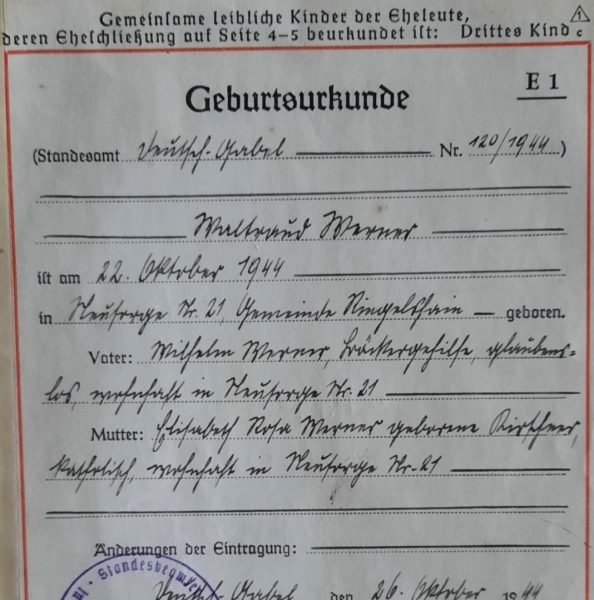 Gemeinsame leibliche Kinder der Eheleute,
deren Eheschließung auf Seite 4–5 beurkundet ist: Drittes Kind c
1
E 1
Geburtsurkunde
(Standesamt Deutsch-Gabel Nr. 120/1944)
Waltraud Werner
ist am 22. Oktober 1944
in Neusorge Nr. 21, Gemeinde Ringelshain geboren.
Vater: Wilhelm Werner, Bäckergehilfe, glaubens-
los, wohnhaft in Neusorge Nr. 21
Mutter: Elisabeth Rosa Werner geborene Kirschner,
katholisch, wohnhaft in Neusorge Nr. 21
Änderungen der Eintragung:
Standesbeamte
Deutsch-Gabel den 26. Oktober 1944